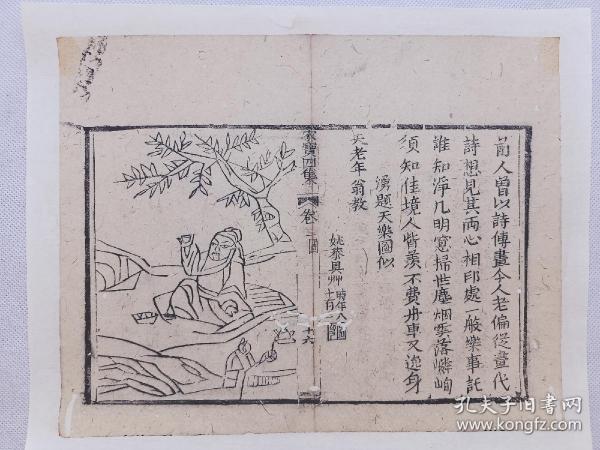 前人曾以詩傳畫今人老偏從畫代
詩想見其両心相印處一般樂事託
誰知淨几明窓掃世塵烟雲落嶙峋
須知佳境人皆羨不費舟車又逸身
湧題天樂圖似
天老年翁教
姚泰具艸
時年八
十
家寶四集
卷二
十六
孔夫子旧书网
www.kongfz.com